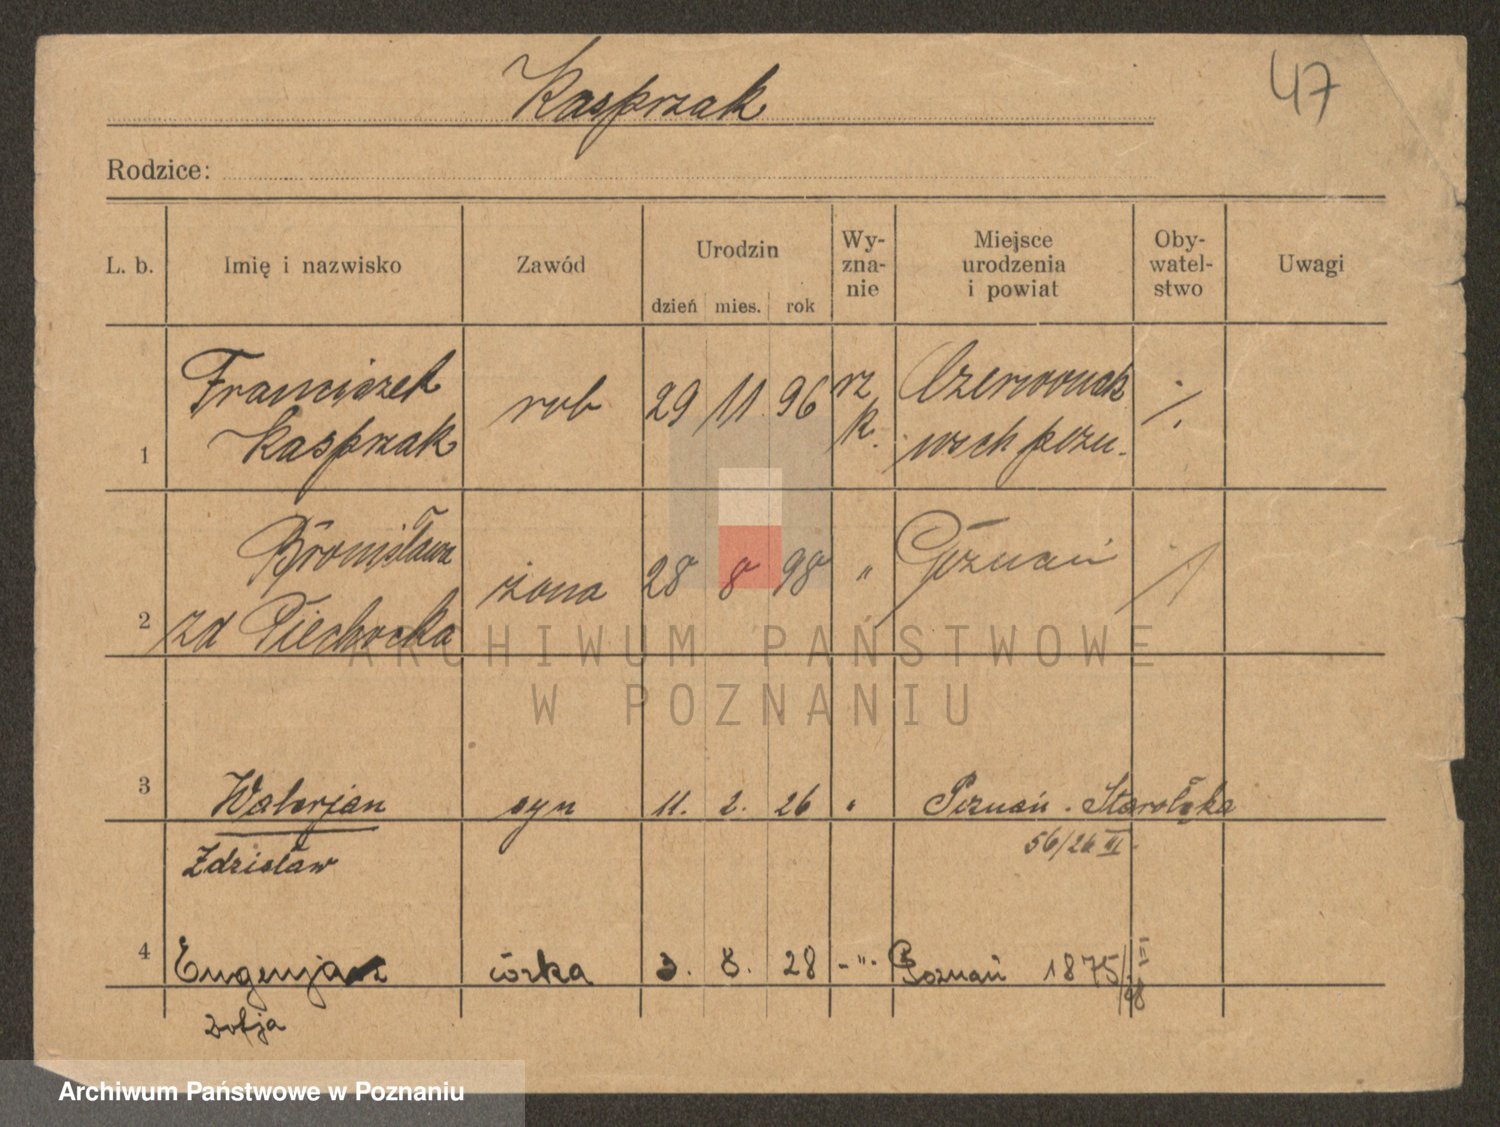 Kasprzak
47
Rodzice:
L. b.
Imię i nazwisko
Zawód
Urodzin
dzień mies. rok
Wy-
zna-
nie
Miejsce
urodzenia
i powiat
Oby-
watel-
stwo
Uwagi
1
Franciszek
Kasprzak
rob
29 11 96
rz
k.
Czerwonak
wsch pozn.
·/.
2
Bronisława
zd Piechocka
żona
28 8 98
"
Poznań
/
3
Walerjan
Zdzisław
syn
11. 2. 26
"
Poznań - Starołęka
56/26 III
4
Eugenja
Zofja
córka
3. 8. 28
-"-
Poznań 1875/28 III
ARCHIWUM PAŃSTWOWE
W POZNANIU
Archiwum Państwowe w Poznaniu